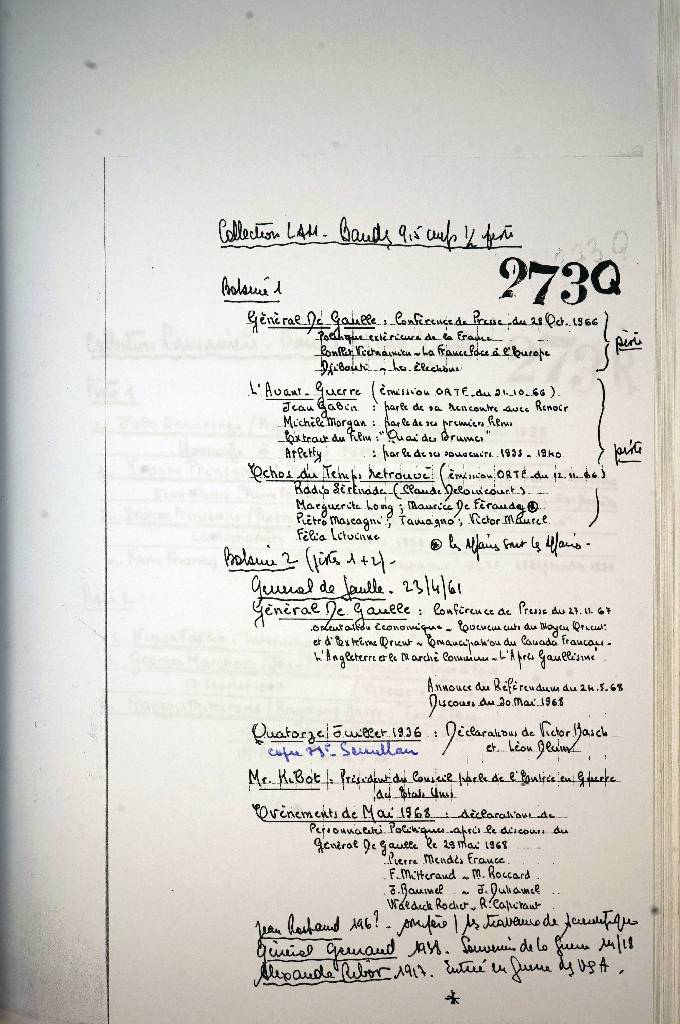 Collection LAM - Bande 9,5 cm/s 1/2 piste
273Q
Bobine 1
Général De Gaulle : Conférence de Presse du 28 Oct. 1966
Politique extérieure de la France
Conflit Vietnamien - La France face à l'Europe
Djibouti - Les élections
piste
L'Avant-Guerre (émission ORTF du 21-10-66)
Jean Gabin : parle de sa rencontre avec Renoir
Michèle Morgan : parle de ses premiers films
Extrait du Film : "Quai des Brumes"
Arletty : parle de ses souvenirs 1935 - 1940
piste
Echos du Temps retrouvé (émission ORTF du 12.11.66)
Radio Sérénade (Claude )
Marguerite Long ; Maurice De Féraudy ⊛
Piétro Mascagni ; Tamagno ; Victor Maurel
Félia Litvinne
⊛ les affaires sont les affaires -
Bobine 2 (pistes 1+2) -
General de Gaulle - 23/4/61
Général De Gaulle : Conférence de Presse du 27.11.67
orientation économique - Evénements du Moyen Orient
et d'Extrême Orient - Emancipation du Canada Français -
L'Angleterre et le Marché Commun - L'Après Gaullisme
Annonce du Référendum du 24.5.68
Discours du 30 Mai 1968
Quatorze Juillet 1936 : Déclarations de Victor Basch
et Léon Blum
copie Mr
Mr. : Président du Conseil parle de l'Entrée en Guerre
des Etats Unis
Evènements de Mai 1968 : déclarations de
Personnalités Politiques après le discours du
Général De Gaulle le 29 mai 1968
Pierre Mendès France
F. Mitterand - M. Roccard
J. Baumel - J. Duhamel
Waldeck Rochet - R. Capitant
Jean Rostand 196? - / les travaux de scientifique
Général 1938 - Souvenir de la Guerre 14/18
Alexandre Ribot 1917. Entrée en Guerre des USA.
*